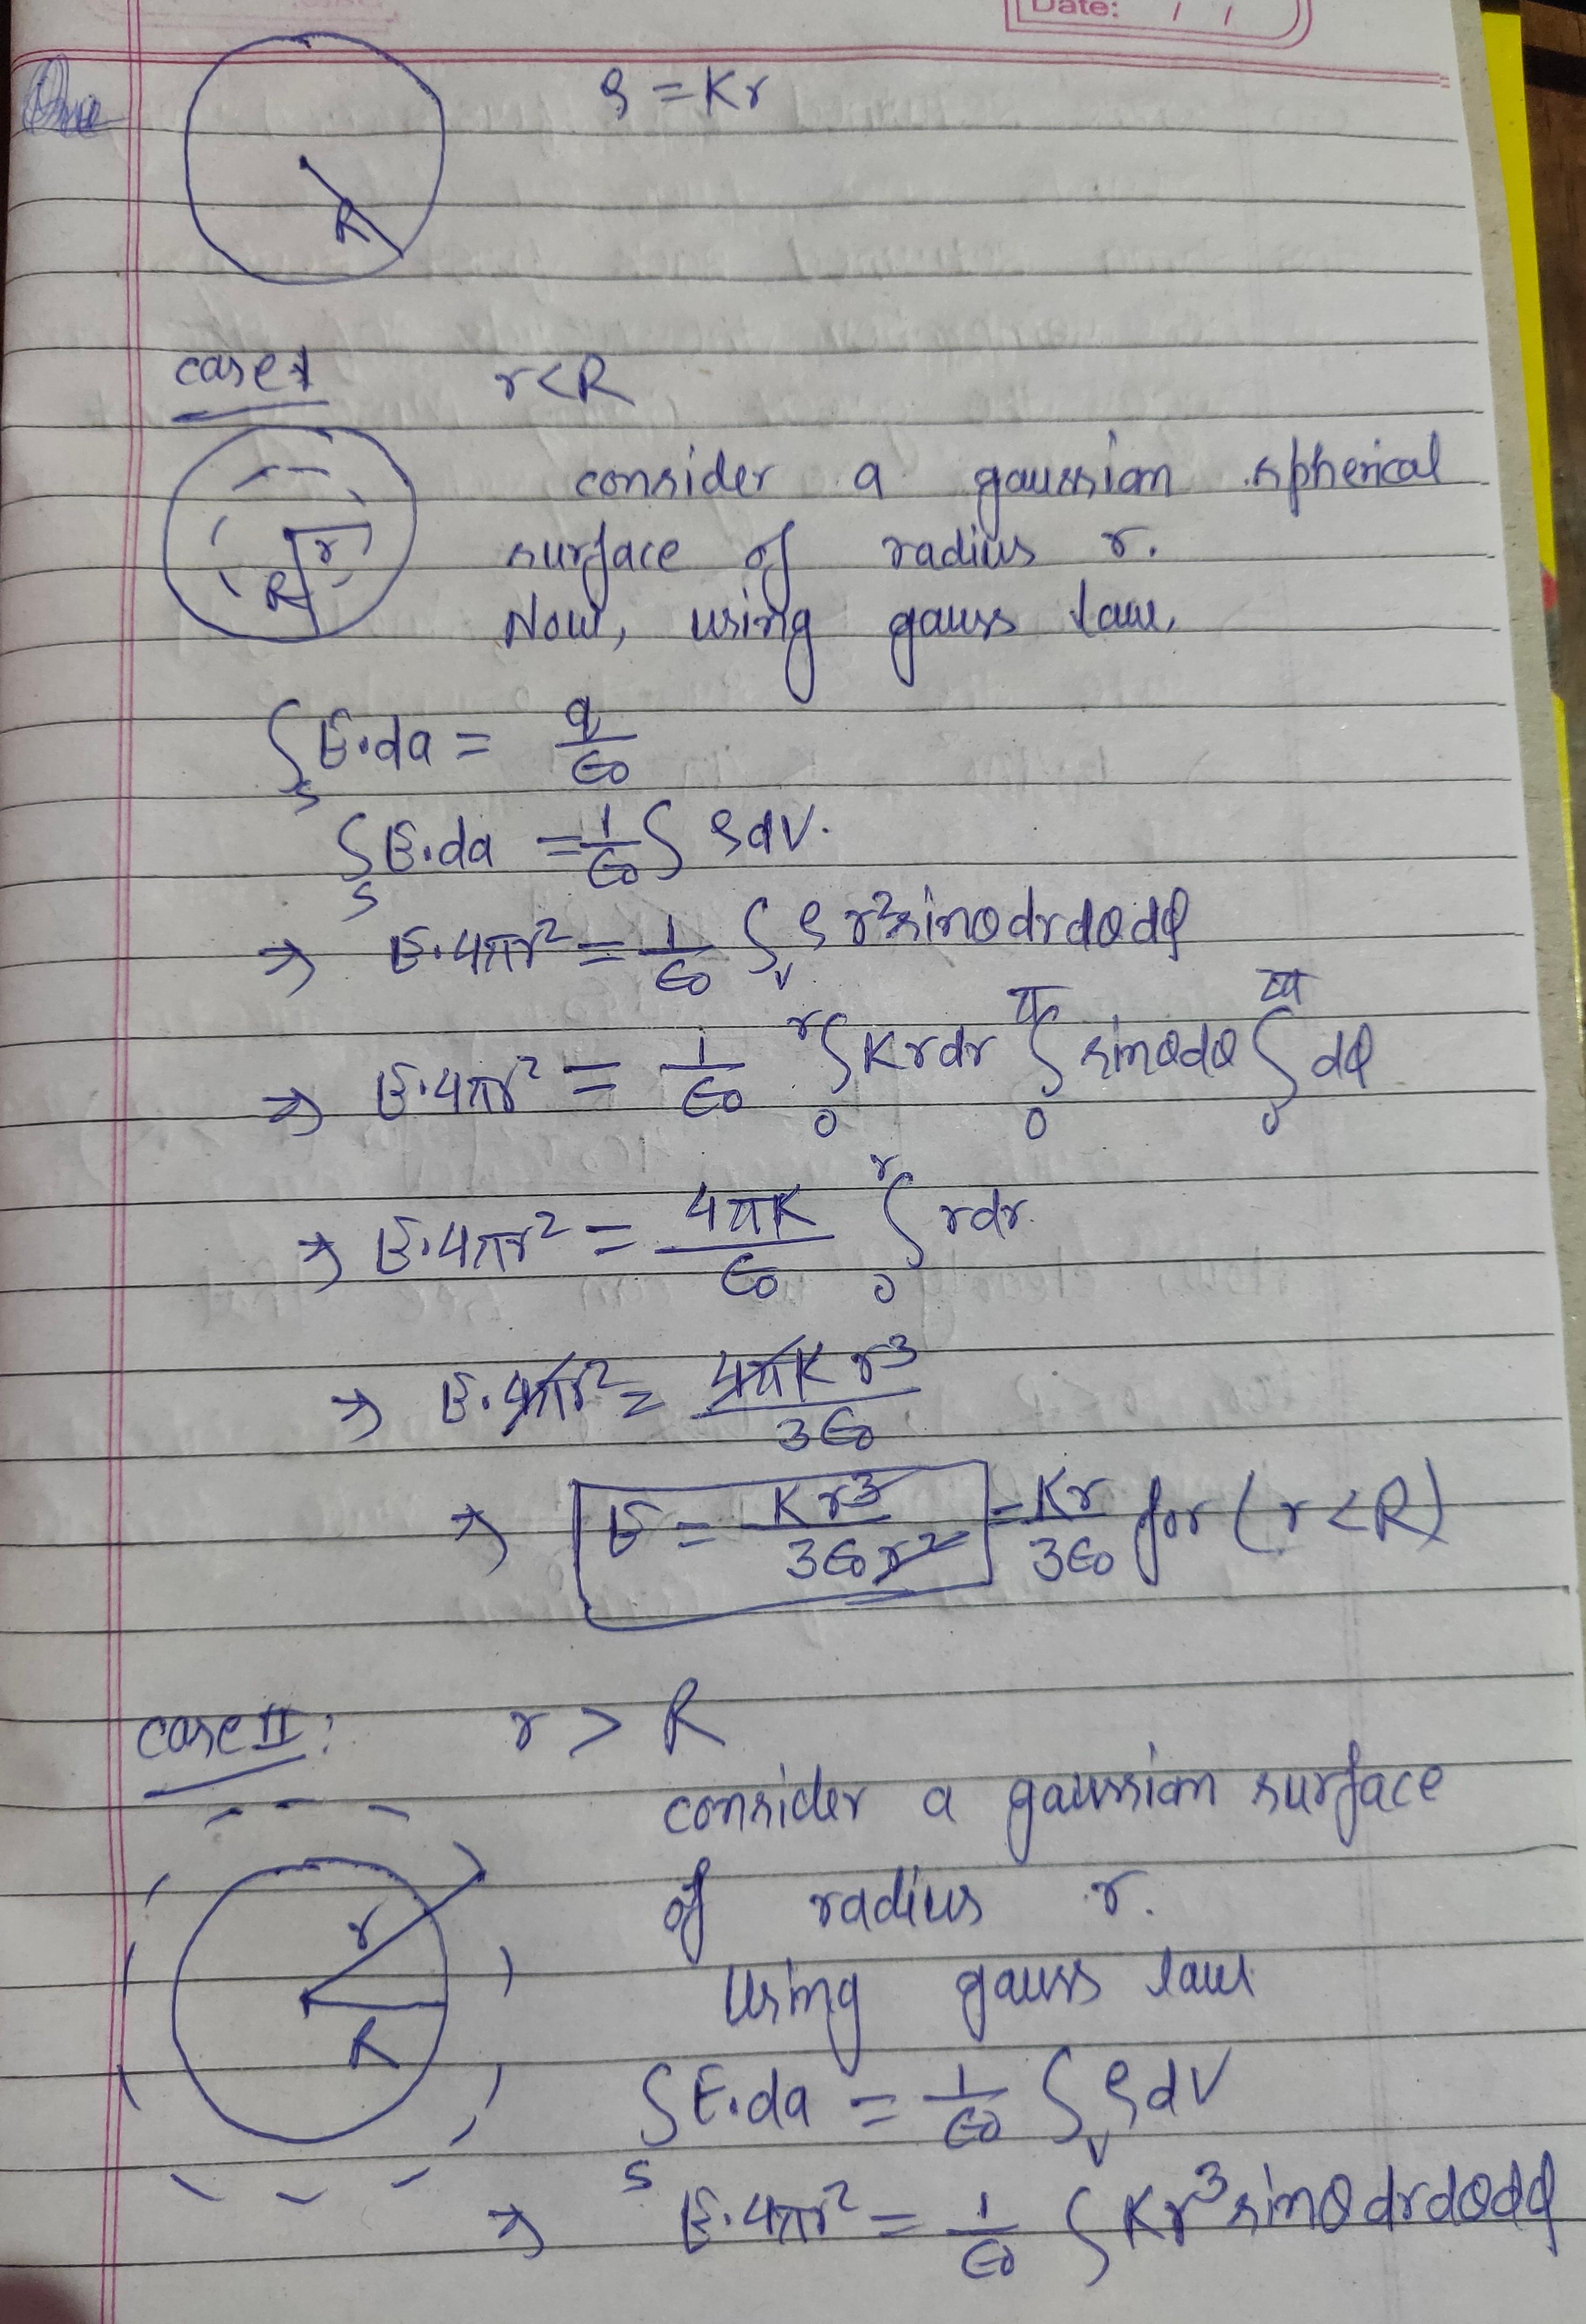 Date: / /
ρ = Kr
R
case I r < R
consider a gaussian spherical
r
R
surface of radius r.
Now, using gauss law,
∫_S E·da = q/ε₀
∫_S E·da = 1/ε₀ ∫ ρdV.
⇒ E·4πr² = 1/ε₀ ∫_V ρ r² sinθ dr dθ dφ
⇒ E·4πr² = 1/ε₀ ∫₀^r Kr dr ∫₀^π sinθ dθ ∫₀^2π dφ
⇒ E·4πr² = 4πK/ε₀ ∫₀^r r dr.
⇒ E·4πr² = 4πK r³/3ε₀
⇒ E = Kr³/3ε₀r² = Kr/3ε₀ for (r < R)
case II: r > R
consider a gaussian surface
of radius r.
r
using gauss law
R
∫_S E·da = 1/ε₀ ∫_V ρdV
⇒ E·4πr² = 1/ε₀ ∫ Kr³ sinθ dr dθ dφ